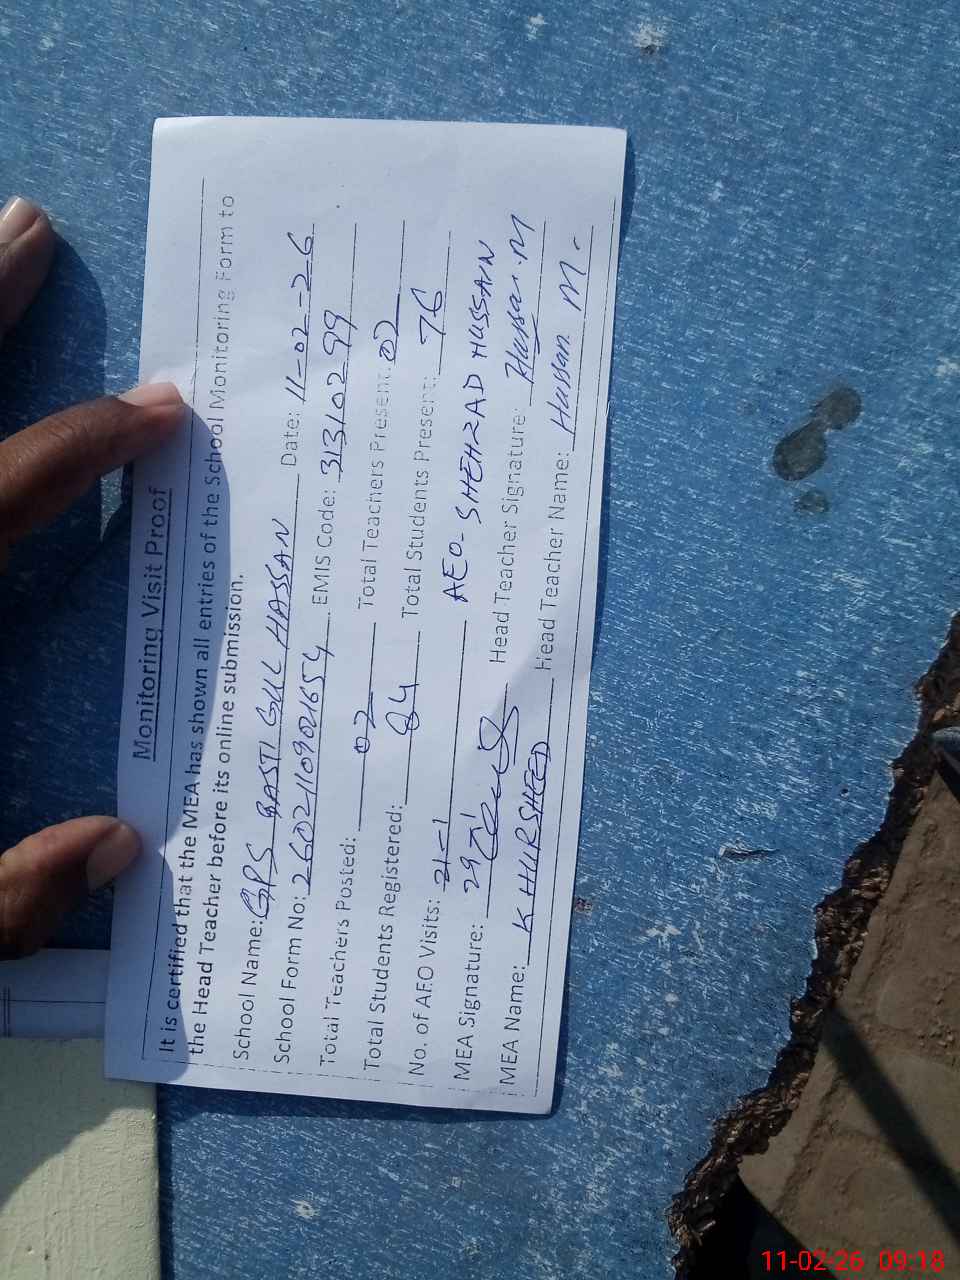 Monitoring Visit Proof
It is certified that the MEA has shown all entries of the School Monitoring Form to
the Head Teacher before its online submission.
School Name: GPS BASTI GUL HASSAN Date: 11-02-26
School Form No: 260211090211654 EMIS Code: 31310299
Total Teachers Posted: 02 Total Teachers Present: 02
Total Students Registered: 84 Total Students Present: 76
No. of AEO Visits: 21-1 AEO- SHEHZAD HUSSAIN
MEA Signature: 29 Head Teacher Signature: Hassan.M
MEA Name: KHURSHEED Head Teacher Name: Hassan M.
11-02-26 09:18